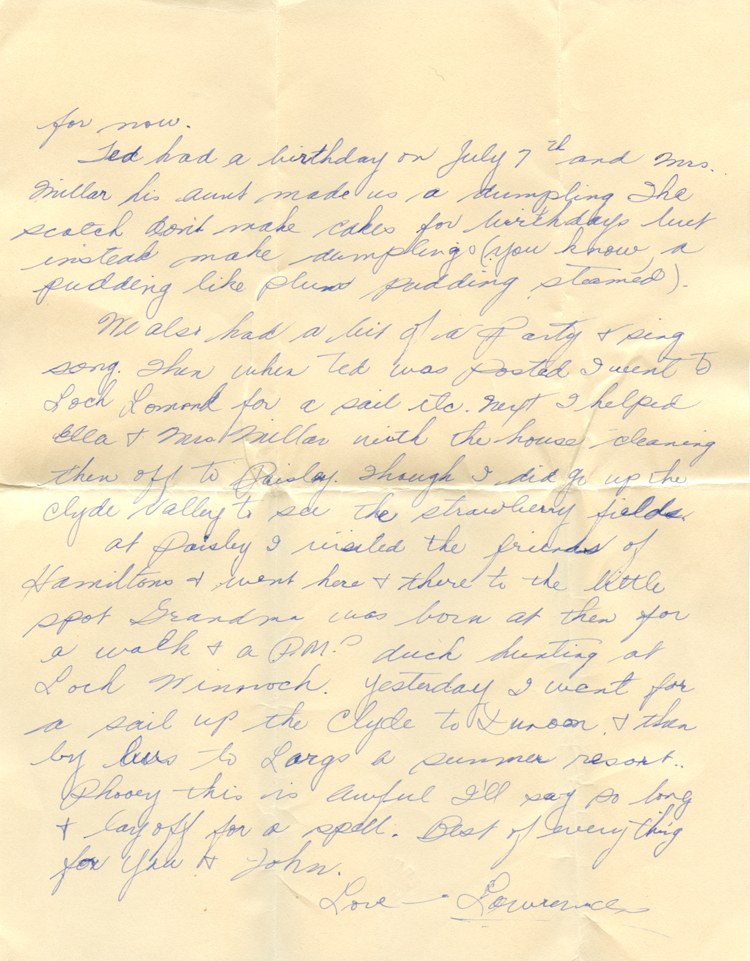 for now.
Ted had a birthday on July 7th and Mrs.
Millar his aunt made us a dumpling The
scotch don't make cakes for birthdays but
instead make dumplings (you know a
pudding like plum pudding steamed).
We also had a bit of a Party & sing
song. Then when Ted was posted I went to
Loch Lomond for a sail etc. Next I helped
Ella & Mrs Millar with the house cleaning
then off to Paisley. Though I did go up the
Clyde Valley to see the strawberry fields.
at Paisley I visited the friends of
Hamiltons & went here & there to the little
spot Grandma was born at then for
a walk & a P.M. duck hunting at
Loch Winnoch. Yesterday I went for
a sail up the Clyde to Dunoon, & then
by bus to Largs a summer resort..
Phooey this is awful I'll say so long
& lay off for a spell. Best of everything
for You & John.
Love — Lawrence